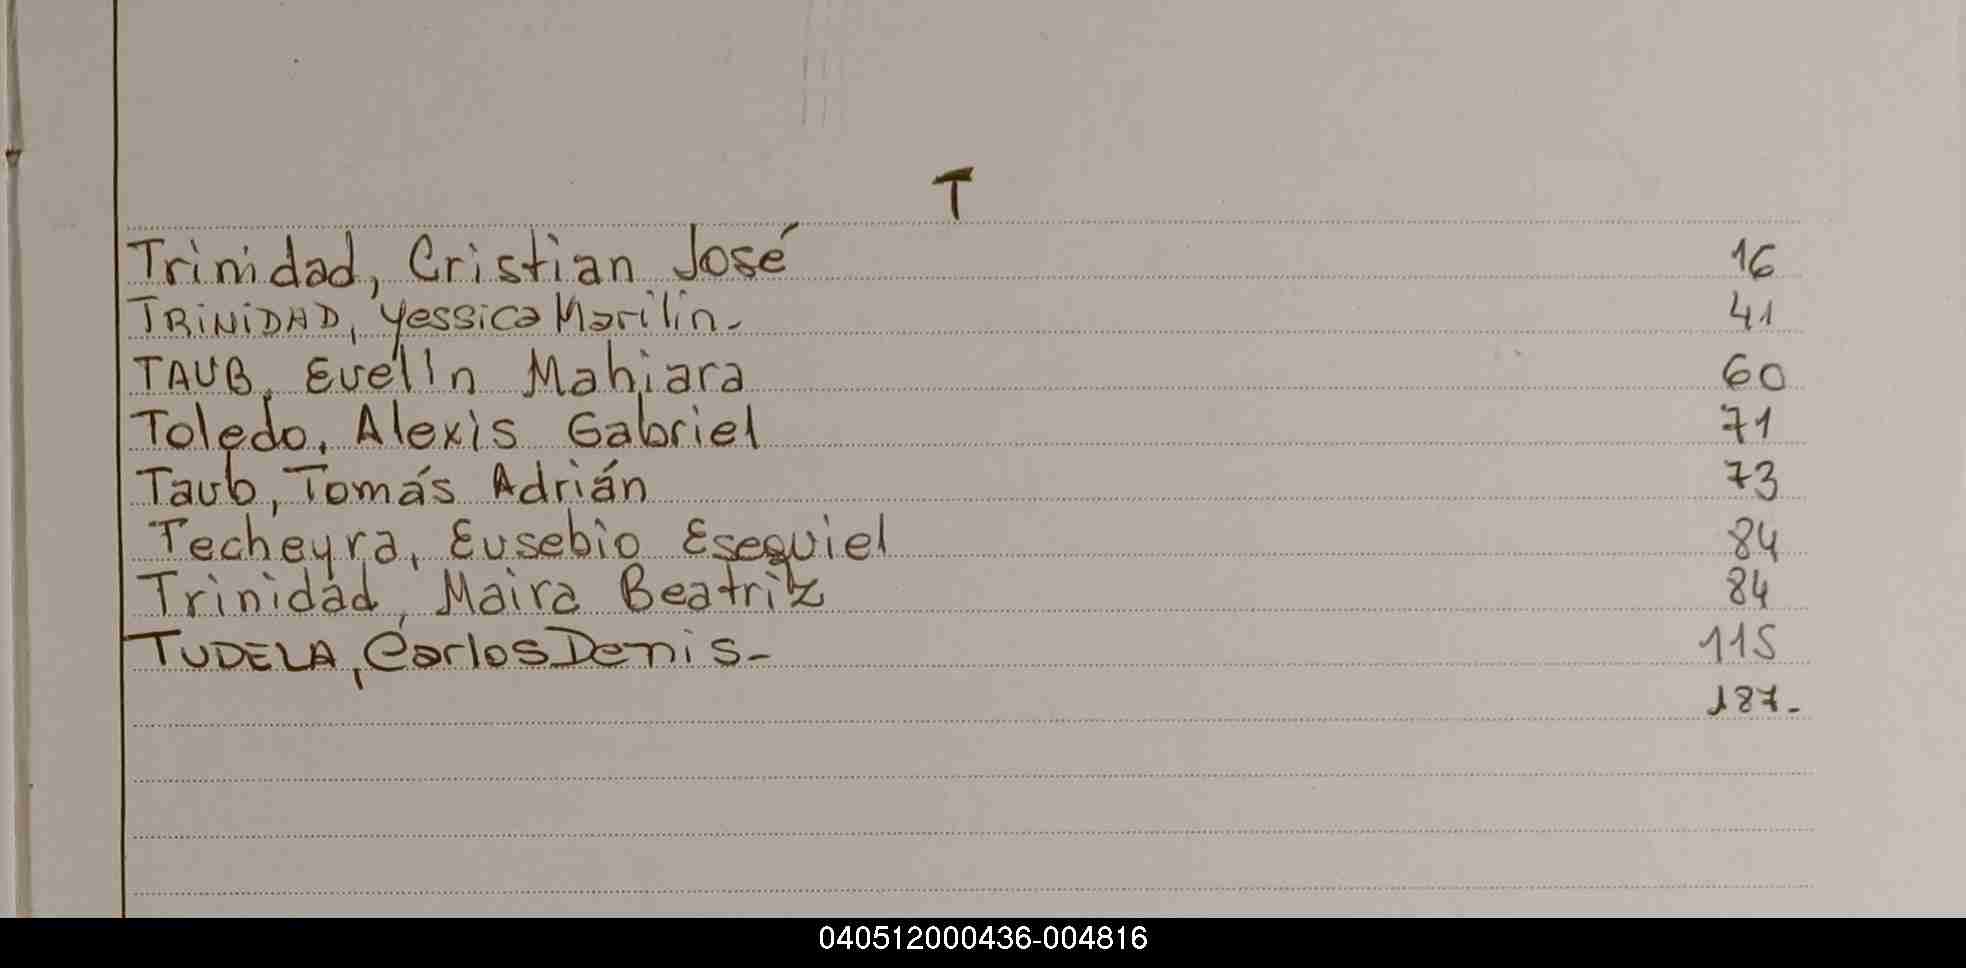 T
Trinidad, Cristian José 16
TRINIDAD, Yessica Marilin- 41
TAUB, Evelin Mahiara 60
Toledo, Alexis Gabriel 71
Taub, Tomás Adrián 73
Techeyra, Eusebio Esequiel 84
Trinidad, Maira Beatriz 84
TUDELA, Carlos Denis- 115
187-
040512000436-004816